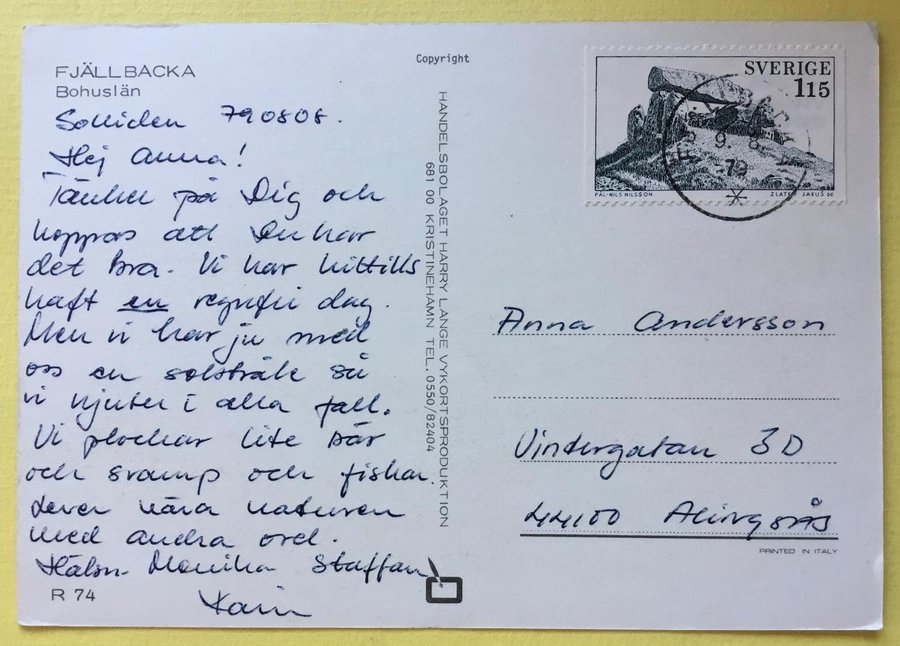 FJÄLLBACKA
Bohuslän
Solliden 790808.
Hej Anna!
Tänker på Dig och
hoppas att Du har
det bra. Vi har hittills
haft en regnfri dag.
Men vi har ju med
oss en solstråle så
vi njuter i alla fall.
Vi plockar lite bär
och svamp och fiskar.
Lever nära naturen
med andra ord.
Hälsn. Monika Staffan
Karin
R 74
Copyright
HANDELSBOLAGET HARRY LANGE VYKORTSPRODUKTION
681 00 KRISTINEHAMN TEL. 0550/82404
SVERIGE
1.15
PÅL-NILS NILSSON
ZLATKO JAKUŠ SC
9. 8.
79
Anna Andersson
Vintergatan 3D
44100 Alingsås
PRINTED IN ITALY